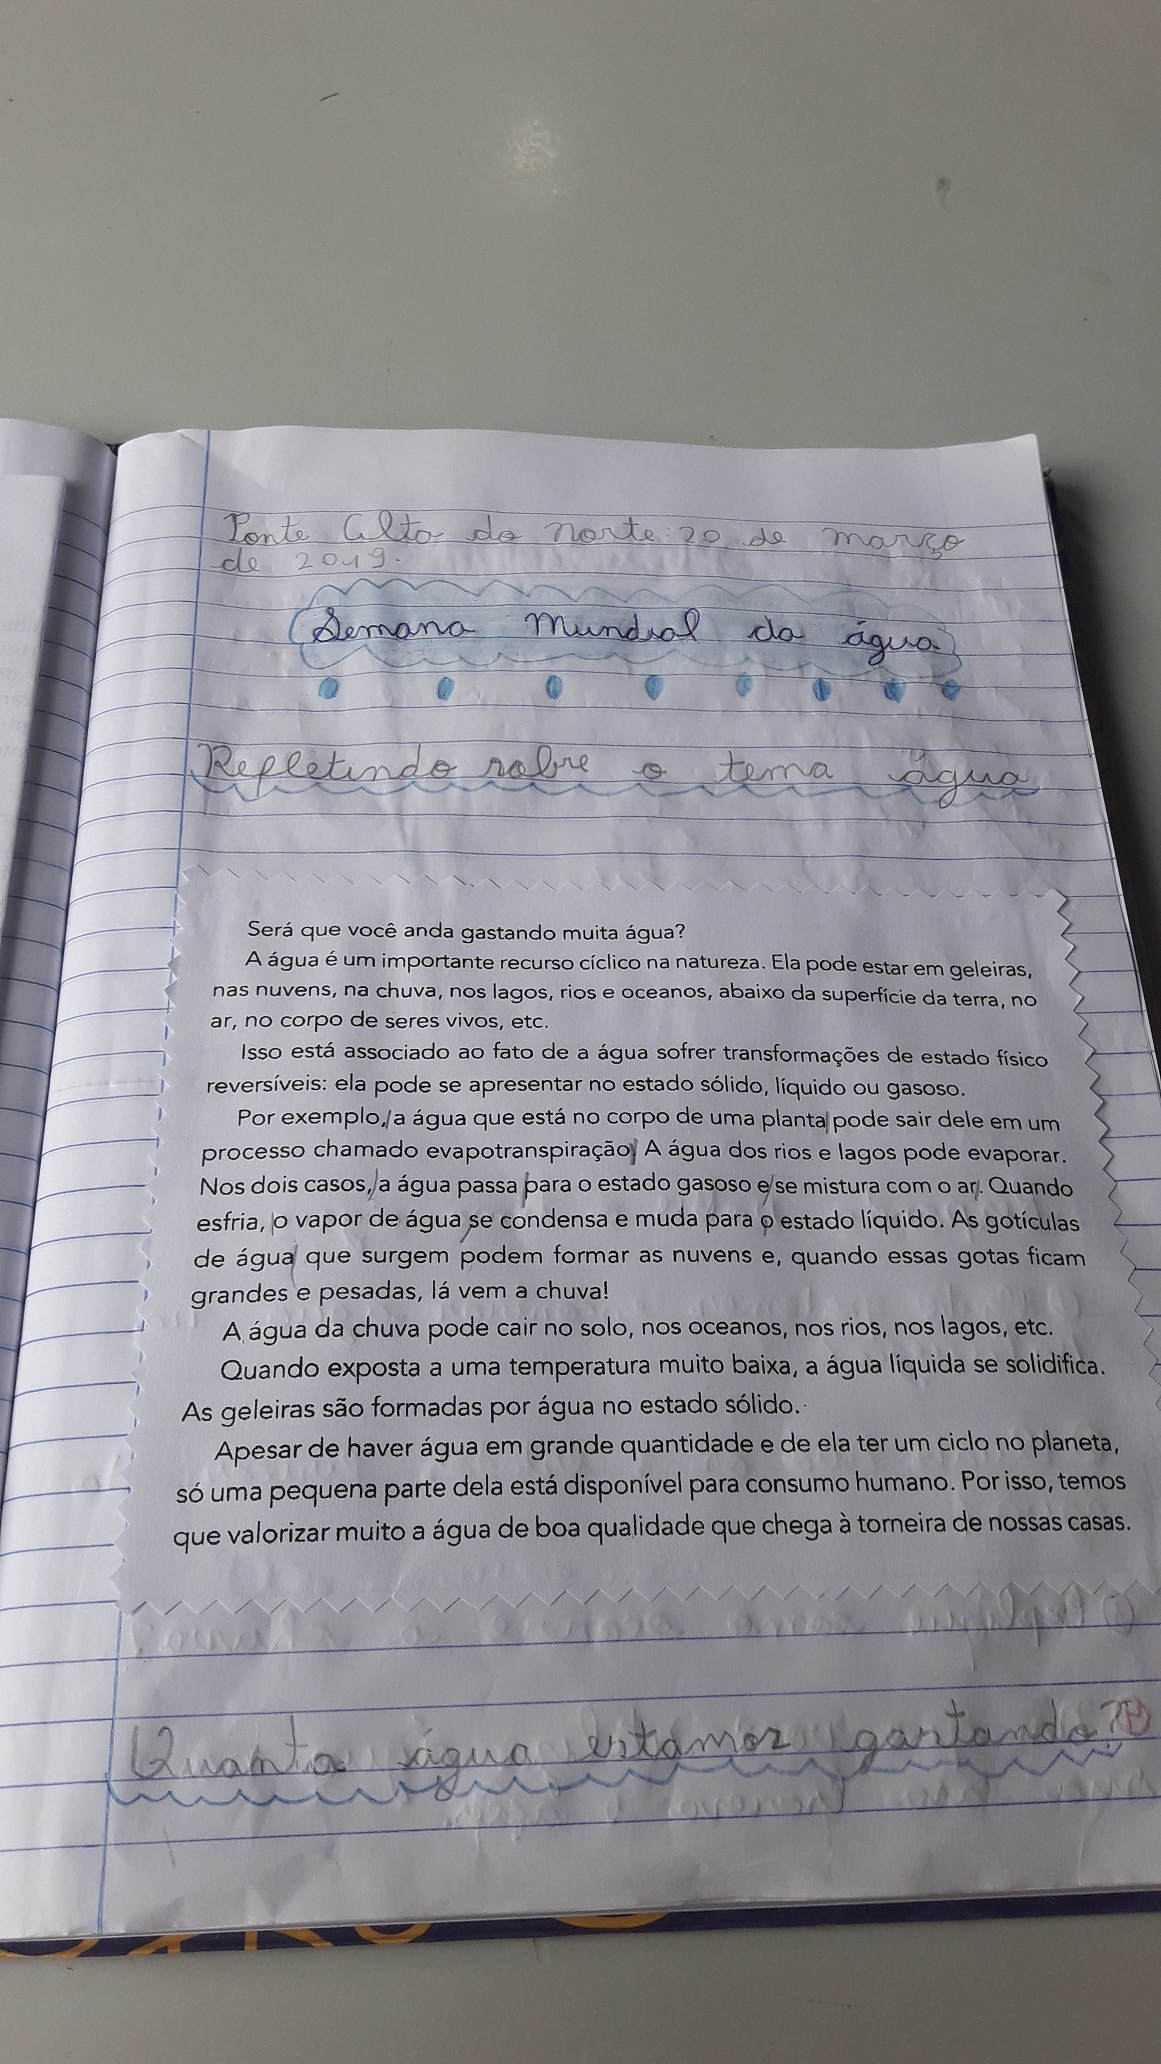 Ponte Alta do norte: 20 de março
de 2019.
Semana Mundial da água
Refletindo sobre o tema água
Será que você anda gastando muita água?
A água é um importante recurso cíclico na natureza. Ela pode estar em geleiras,
nas nuvens, na chuva, nos lagos, rios e oceanos, abaixo da superfície da terra, no
ar, no corpo de seres vivos, etc.
Isso está associado ao fato de a água sofrer transformações de estado físico
reversíveis: ela pode se apresentar no estado sólido, líquido ou gasoso.
Por exemplo, a água que está no corpo de uma planta pode sair dele em um
processo chamado evapotranspiração. A água dos rios e lagos pode evaporar.
Nos dois casos, a água passa para o estado gasoso e se mistura com o ar. Quando
esfria, o vapor de água se condensa e muda para o estado líquido. As gotículas
de água que surgem podem formar as nuvens e, quando essas gotas ficam
grandes e pesadas, lá vem a chuva!
A água da chuva pode cair no solo, nos oceanos, nos rios, nos lagos, etc.
Quando exposta a uma temperatura muito baixa, a água líquida se solidifica.
As geleiras são formadas por água no estado sólido.
Apesar de haver água em grande quantidade e de ela ter um ciclo no planeta,
só uma pequena parte dela está disponível para consumo humano. Por isso, temos
que valorizar muito a água de boa qualidade que chega à torneira de nossas casas.
Quanta água estamos gastando?